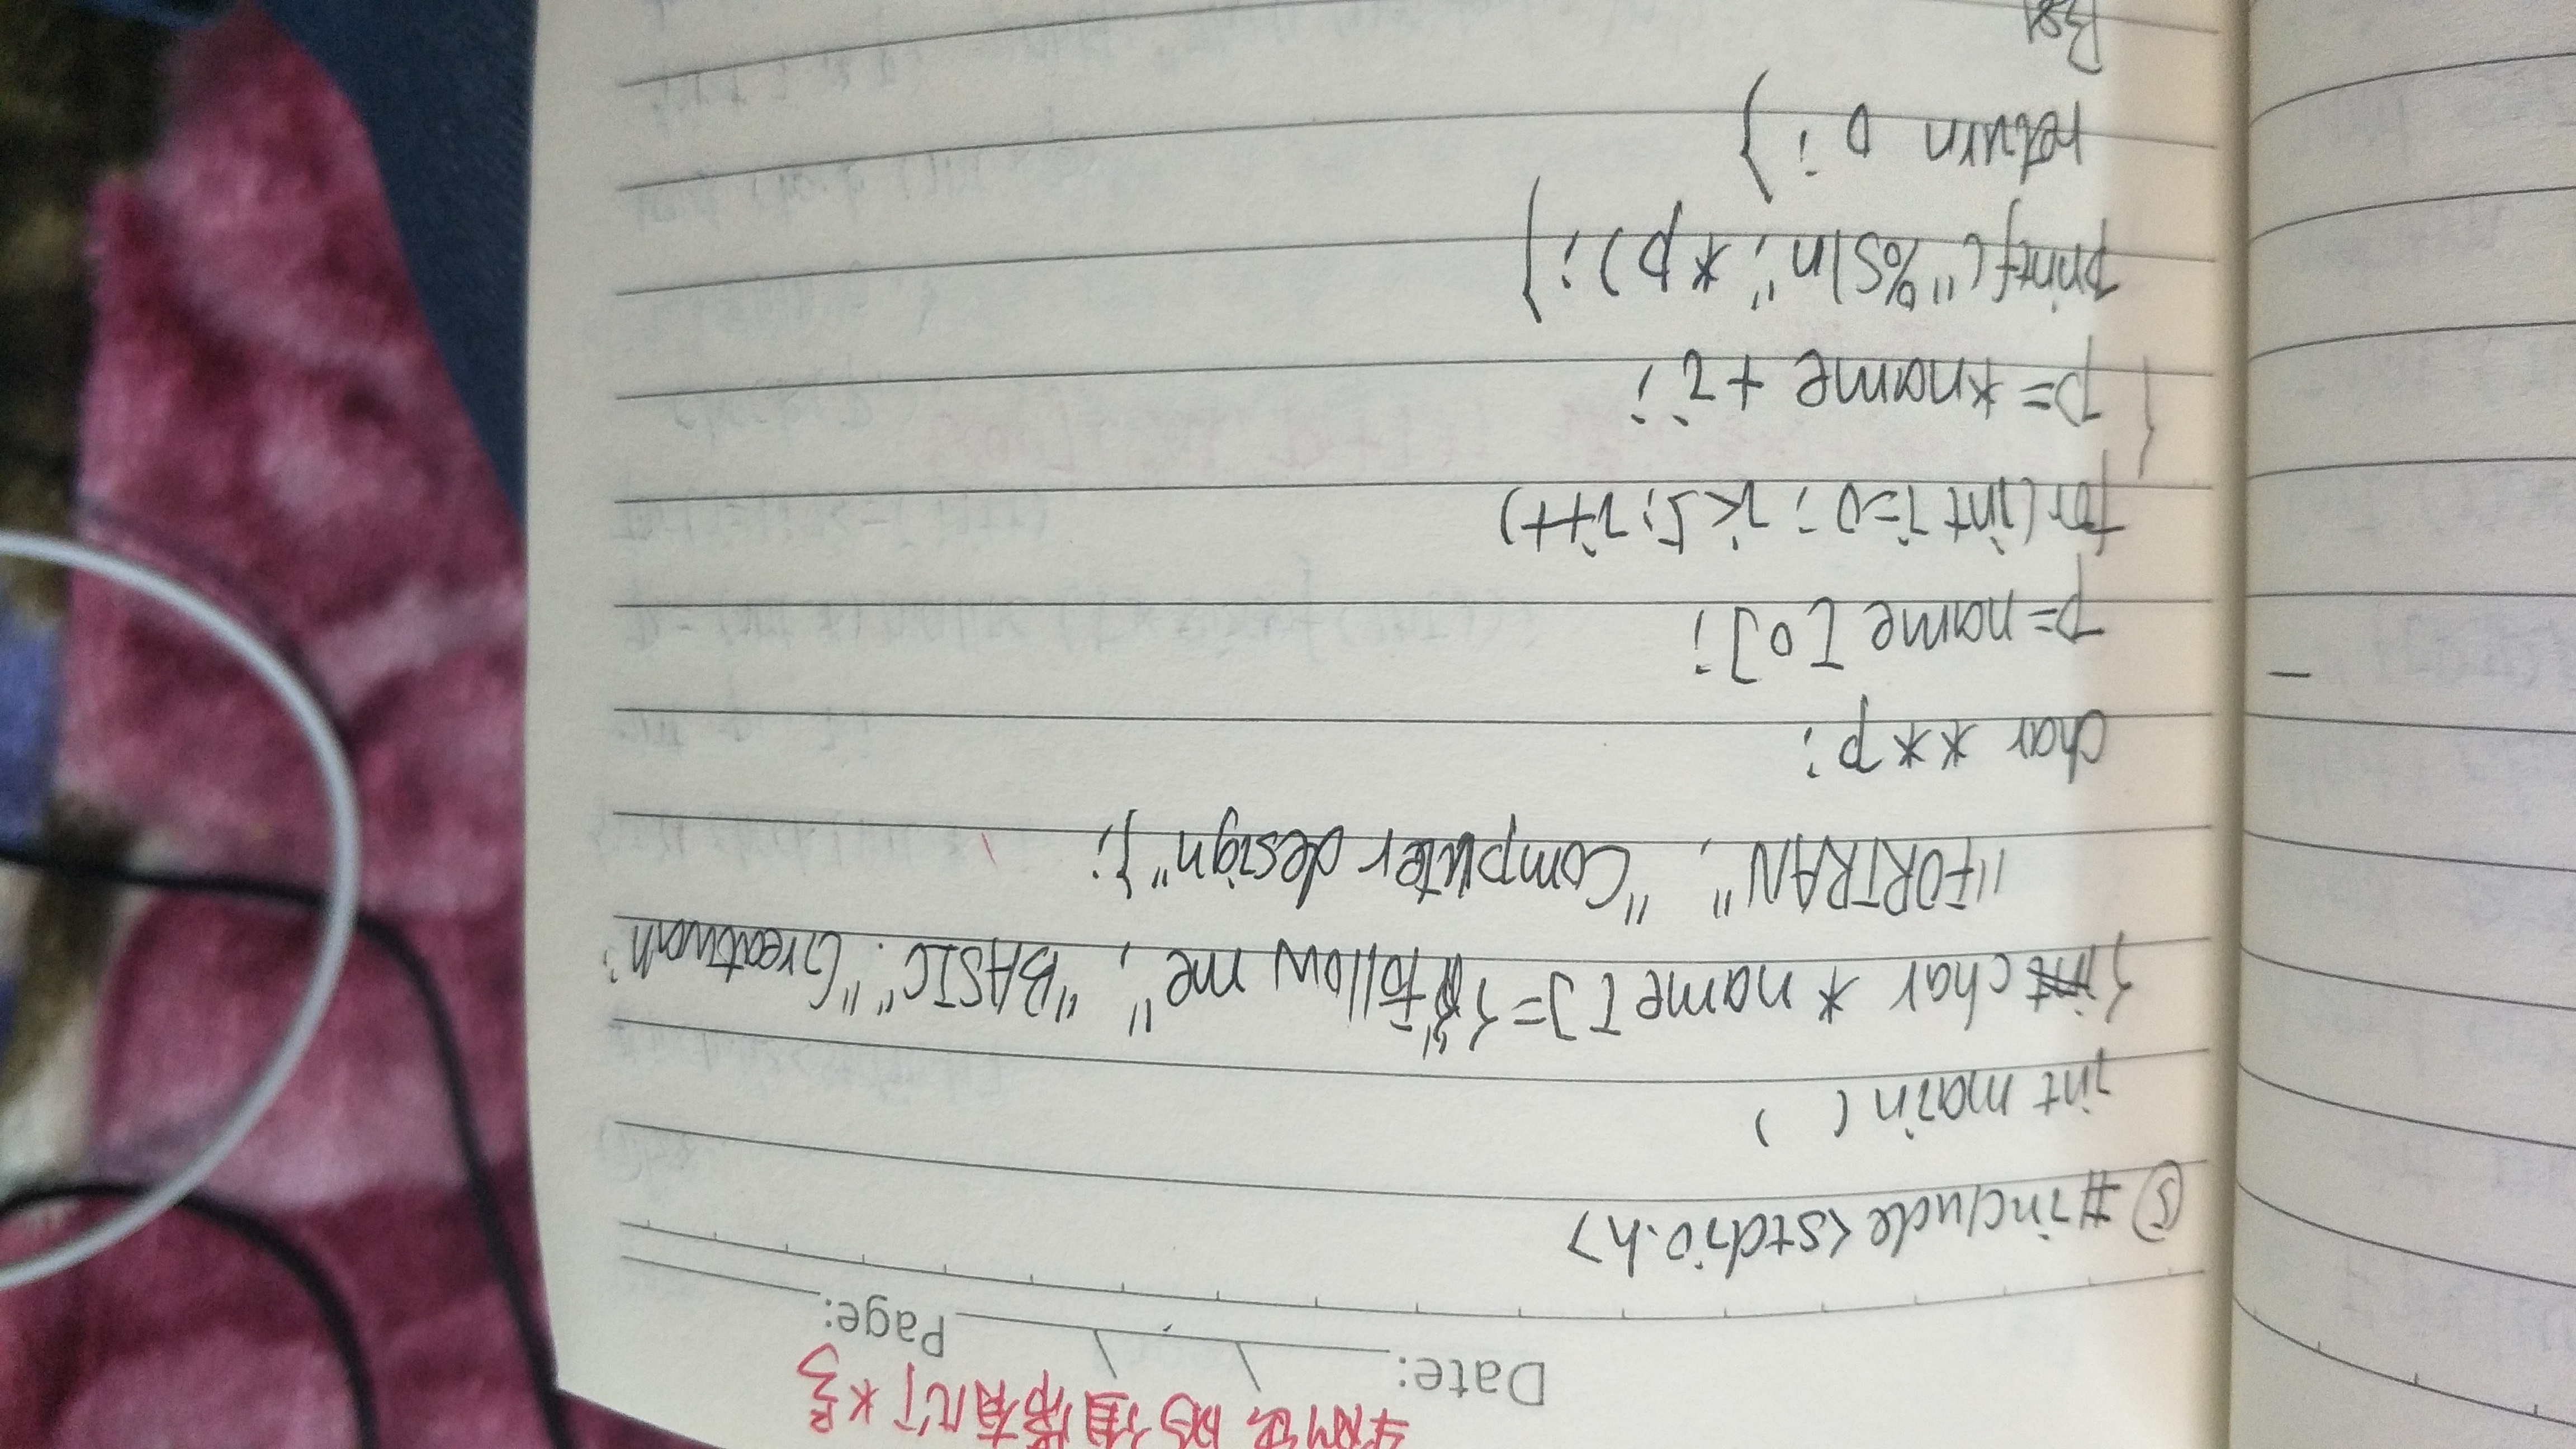 的值带有几个*号
Date: Page:
⑤ #include<stdio.h>
int main( )
{char *name[]={"Follow me", "BASIC"."Greatwan",
"FORTRAN", "Computer design"};
char **p;
p=name[0];
for(int i=0; i<5; i++)
{ p=*name+i;
printf("%s\n", *p);}
return 0;}